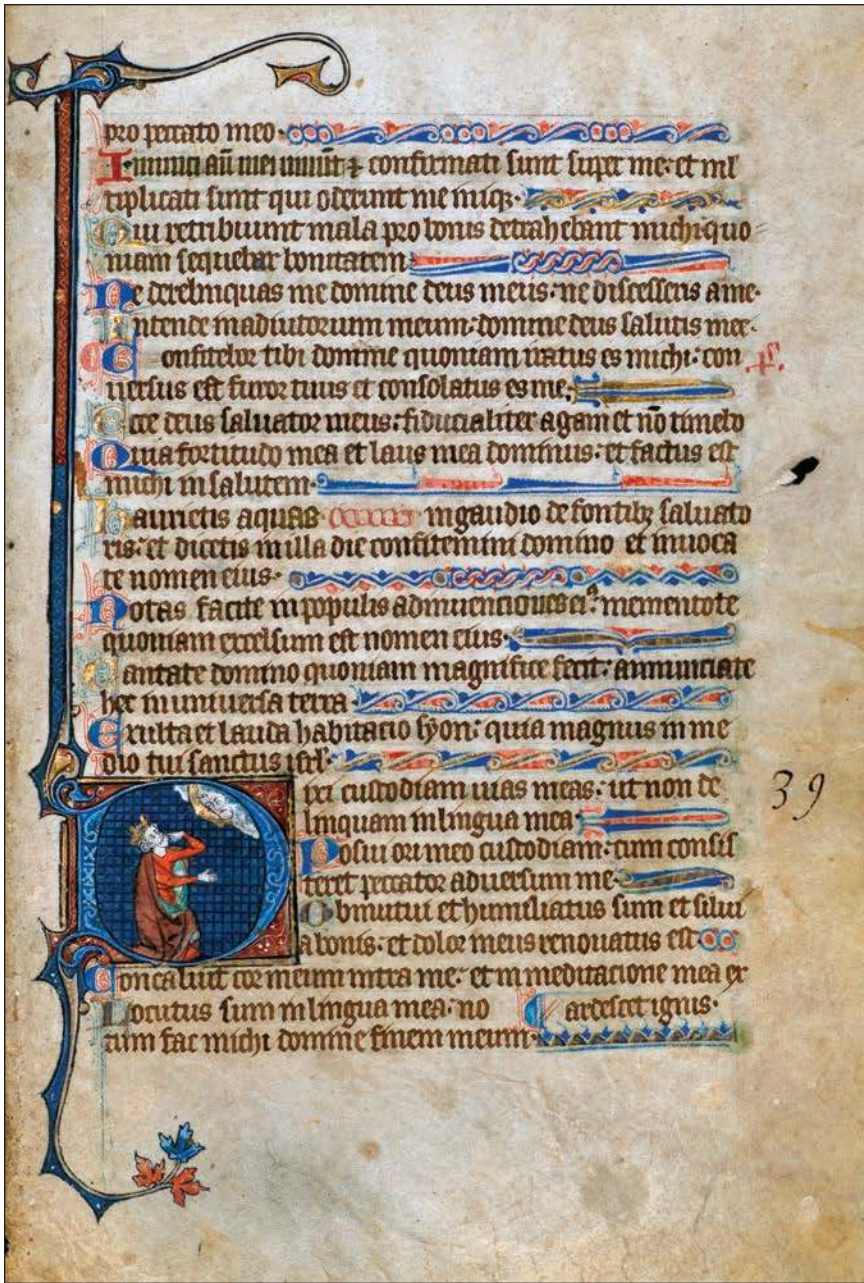 pro peccato meo.
Inimici aut̄ mei uiuūt ⁊ confirmati sunt super me: et ml̄
tiplicati sunt qui oderunt me iniq̄.
Qui retribuunt mala pro bonis detrahebant michi quo
niam sequebar bonitatem.
Ne derelinquas me domine deus meus: ne discesseris a me.
Intende in adiutorium meum: domine deus salutis mee.
Confitebor tibi domine quoniam iratus es michi: con
uersus est furor tuus et consolatus es me.
Ecce deus saluator meus: fiducialiter agam et nō timebo
Quia fortitudo mea et laus mea dominus: et factus est
michi in salutem.
Haurietis aquas in gaudio de fontibꝫ saluato
ris: et dicetis in illa die confitemini domino et inuoca
te nomen eius.
Notas facite in populis adinuenciones ei⁹: mementote
quoniam excelsum est nomen eius.
Cantate domino quoniam magnifice fecit: annunciate
hec in uniuersa terra.
Exulta et lauda habitacio syon: quia magnus in me
dio tui sanctus isrl̄.
Dixi custodiam uias meas: ut non de
linquam in lingua mea.
39
Posui ori meo custodiam: cum consis
teret peccator aduersum me.
Obmutui et humiliatus sum et silui
a bonis: et dolor meus renouatus est.
Concaluit cor meum intra me: et in meditacione mea ex
Locutus sum in lingua mea: no ardescet ignis.
tum fac michi domine finem meum.